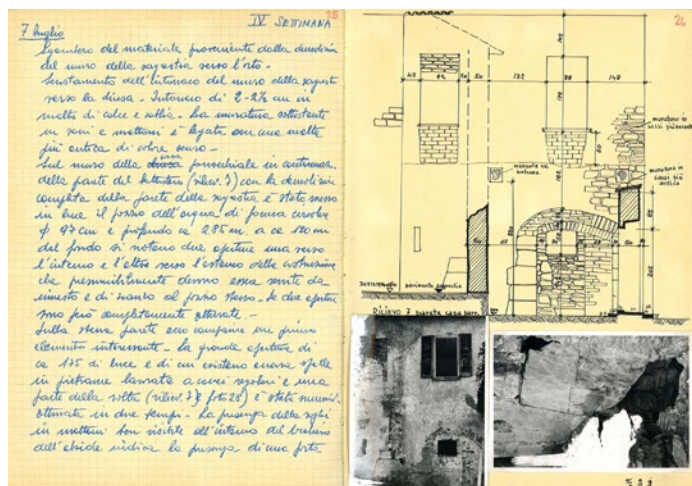 25
IV SETTIMANA
7 luglio
Sgombero del materiale proveniente dalla demolizione
del muro della sagrestia verso l'orto.
Scrostamento dell'intonaco del muro della sagrestia
verso la chiesa. Intonaco di 2-2½ cm in
malta di calce e sabbia. La muratura sottostante
in sassi e mattoni è legata con una malta
più antica di colore scuro.
Sul muro della casa parrocchiale in continuazione
della parete del (riliev. 7) con la demolizione
completa della parete della sagrestia è stato messo
in luce il pozzo dell'acqua di forma circolare
φ 97 cm e profondo ca 285 cm. a ca 120 cm
dal fondo si notano due aperture una verso
l'interno e l'altra verso l'esterno della costruzione
che presumibilmente devono essere servite da
innesto e di scarico al pozzo stesso. Le due aperture
sono però completamente otturate. -
Sulla stessa parete ecco comparire un primo
elemento interessante. La grande apertura di
ca 175 di luce e di cui esistono ancora spalle
in pietrame lavorato a corsi regolari e una
parte della volta (riliev. 7 e foto 25) è stata
otturata in due tempi. La presenza della
in mattoni ben visibile all'interno del
dell'abside indica la presenza di una porta
26
45
82
50
50
132
98
148
muratura in
sassi più recente
muratura in
sassi più
antica
pavimento sagrestia
Rilievo 7 parete casa parr.